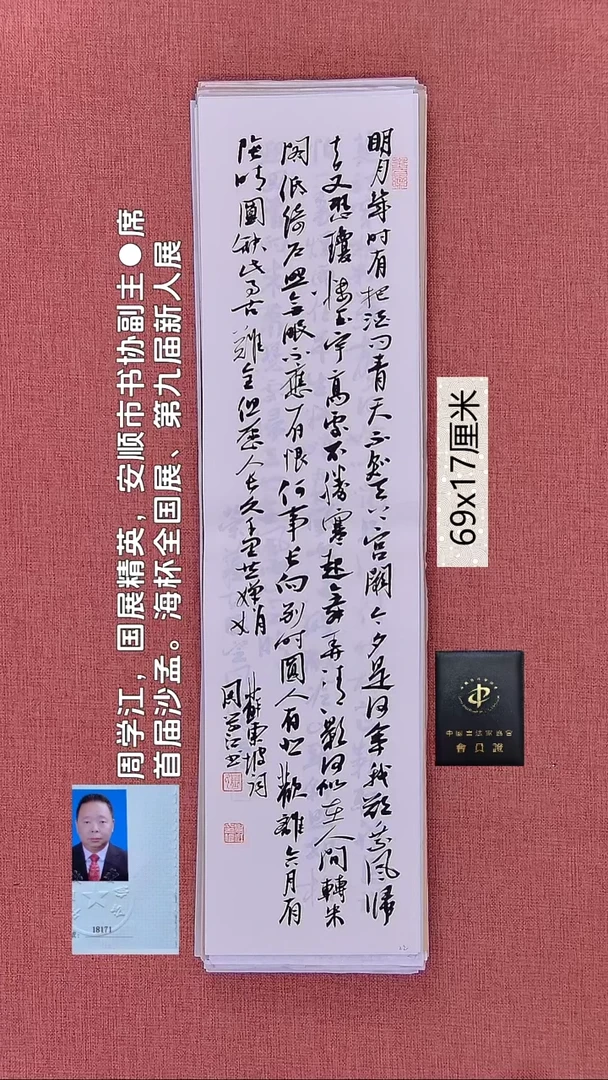 明月幾时有把酒问青天不知天上宮闕今夕是何年我欲乘风歸
去又恐瓊樓玉宇高處不勝寒起舞弄清影何似在人间轉朱
阁低绮户照無眠不應有恨何事长向别时圓人有悲歡離合月有
陰晴圓缺此事古難全但愿人长久千里共嬋娟
蘇東坡词
周学江书
周学江，国展精英，安顺市书协副主●席
首届沙孟。海杯全国展、第九届新人展
69x17厘米
會員證
18171